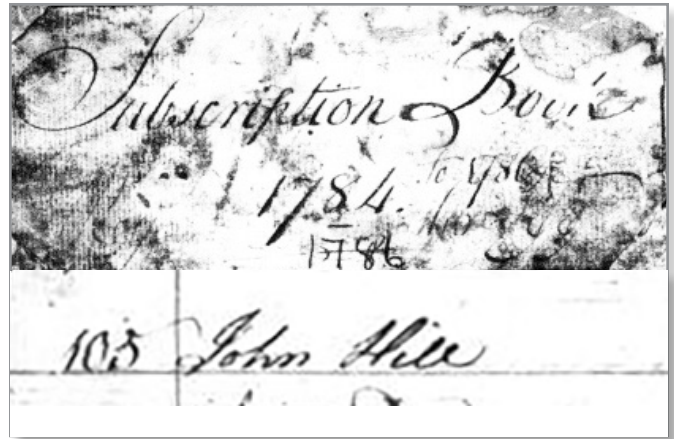 Subscription Book
1784. to 1786
1786
105 John Hill